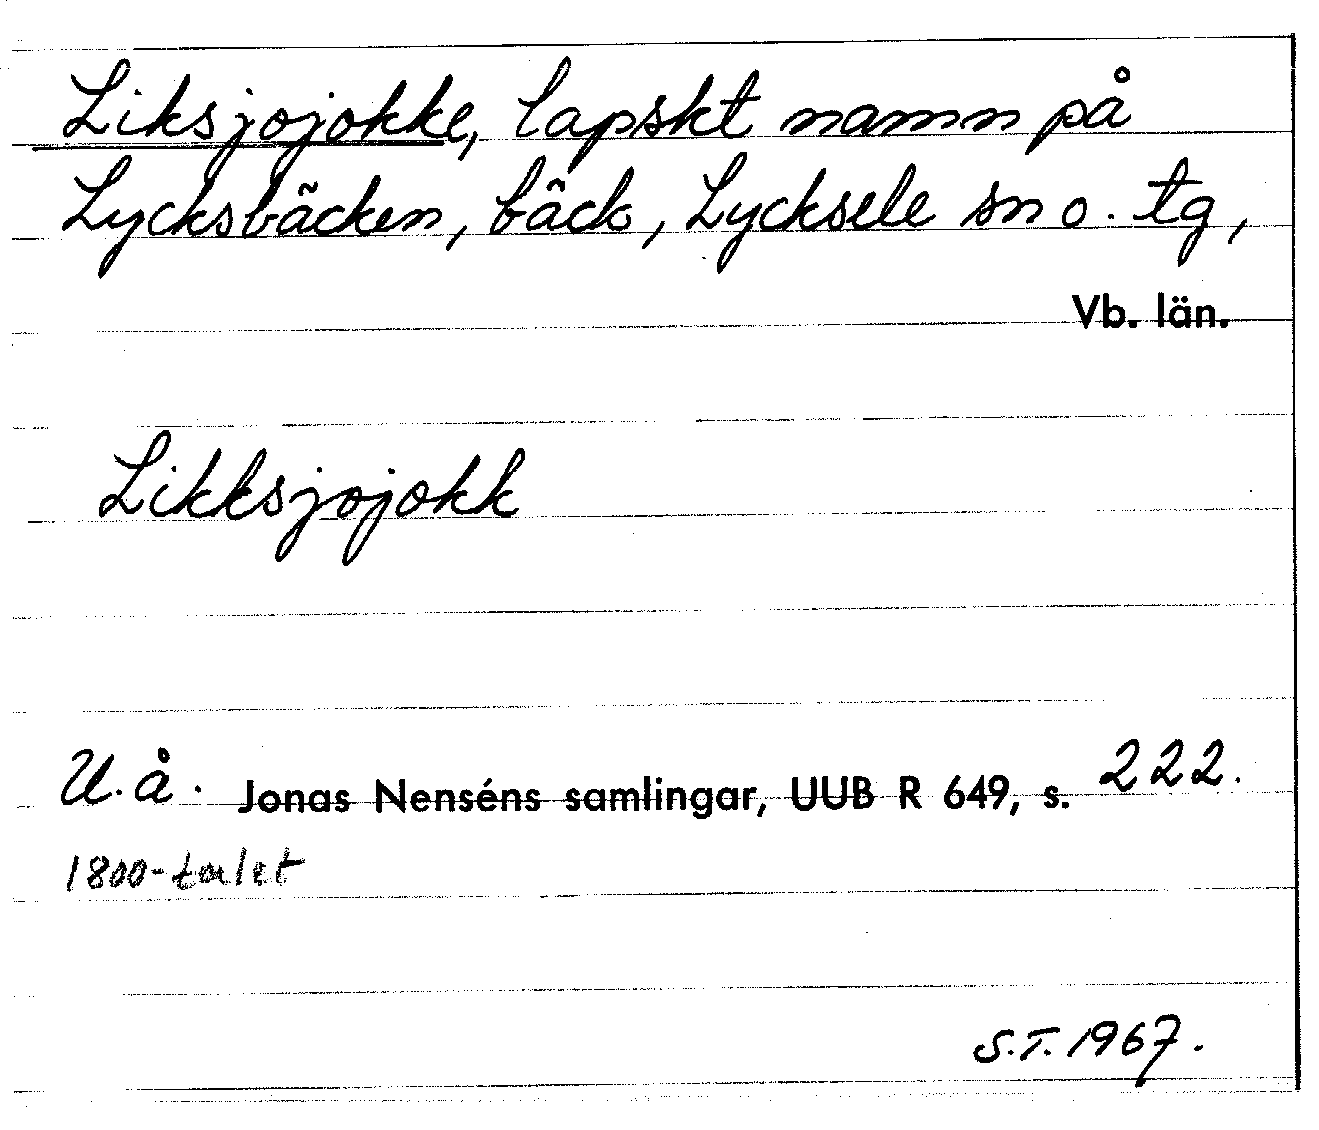 Liksjojokke, lapskt namn på
Lycksbäcken, bäck, Lycksele sn o. tg,
Vb. län.
Likksjojokk
U.å. Jonas Nenséns samlingar, UUB R 649, s. 222.
1800-talet
S.T. 1967.